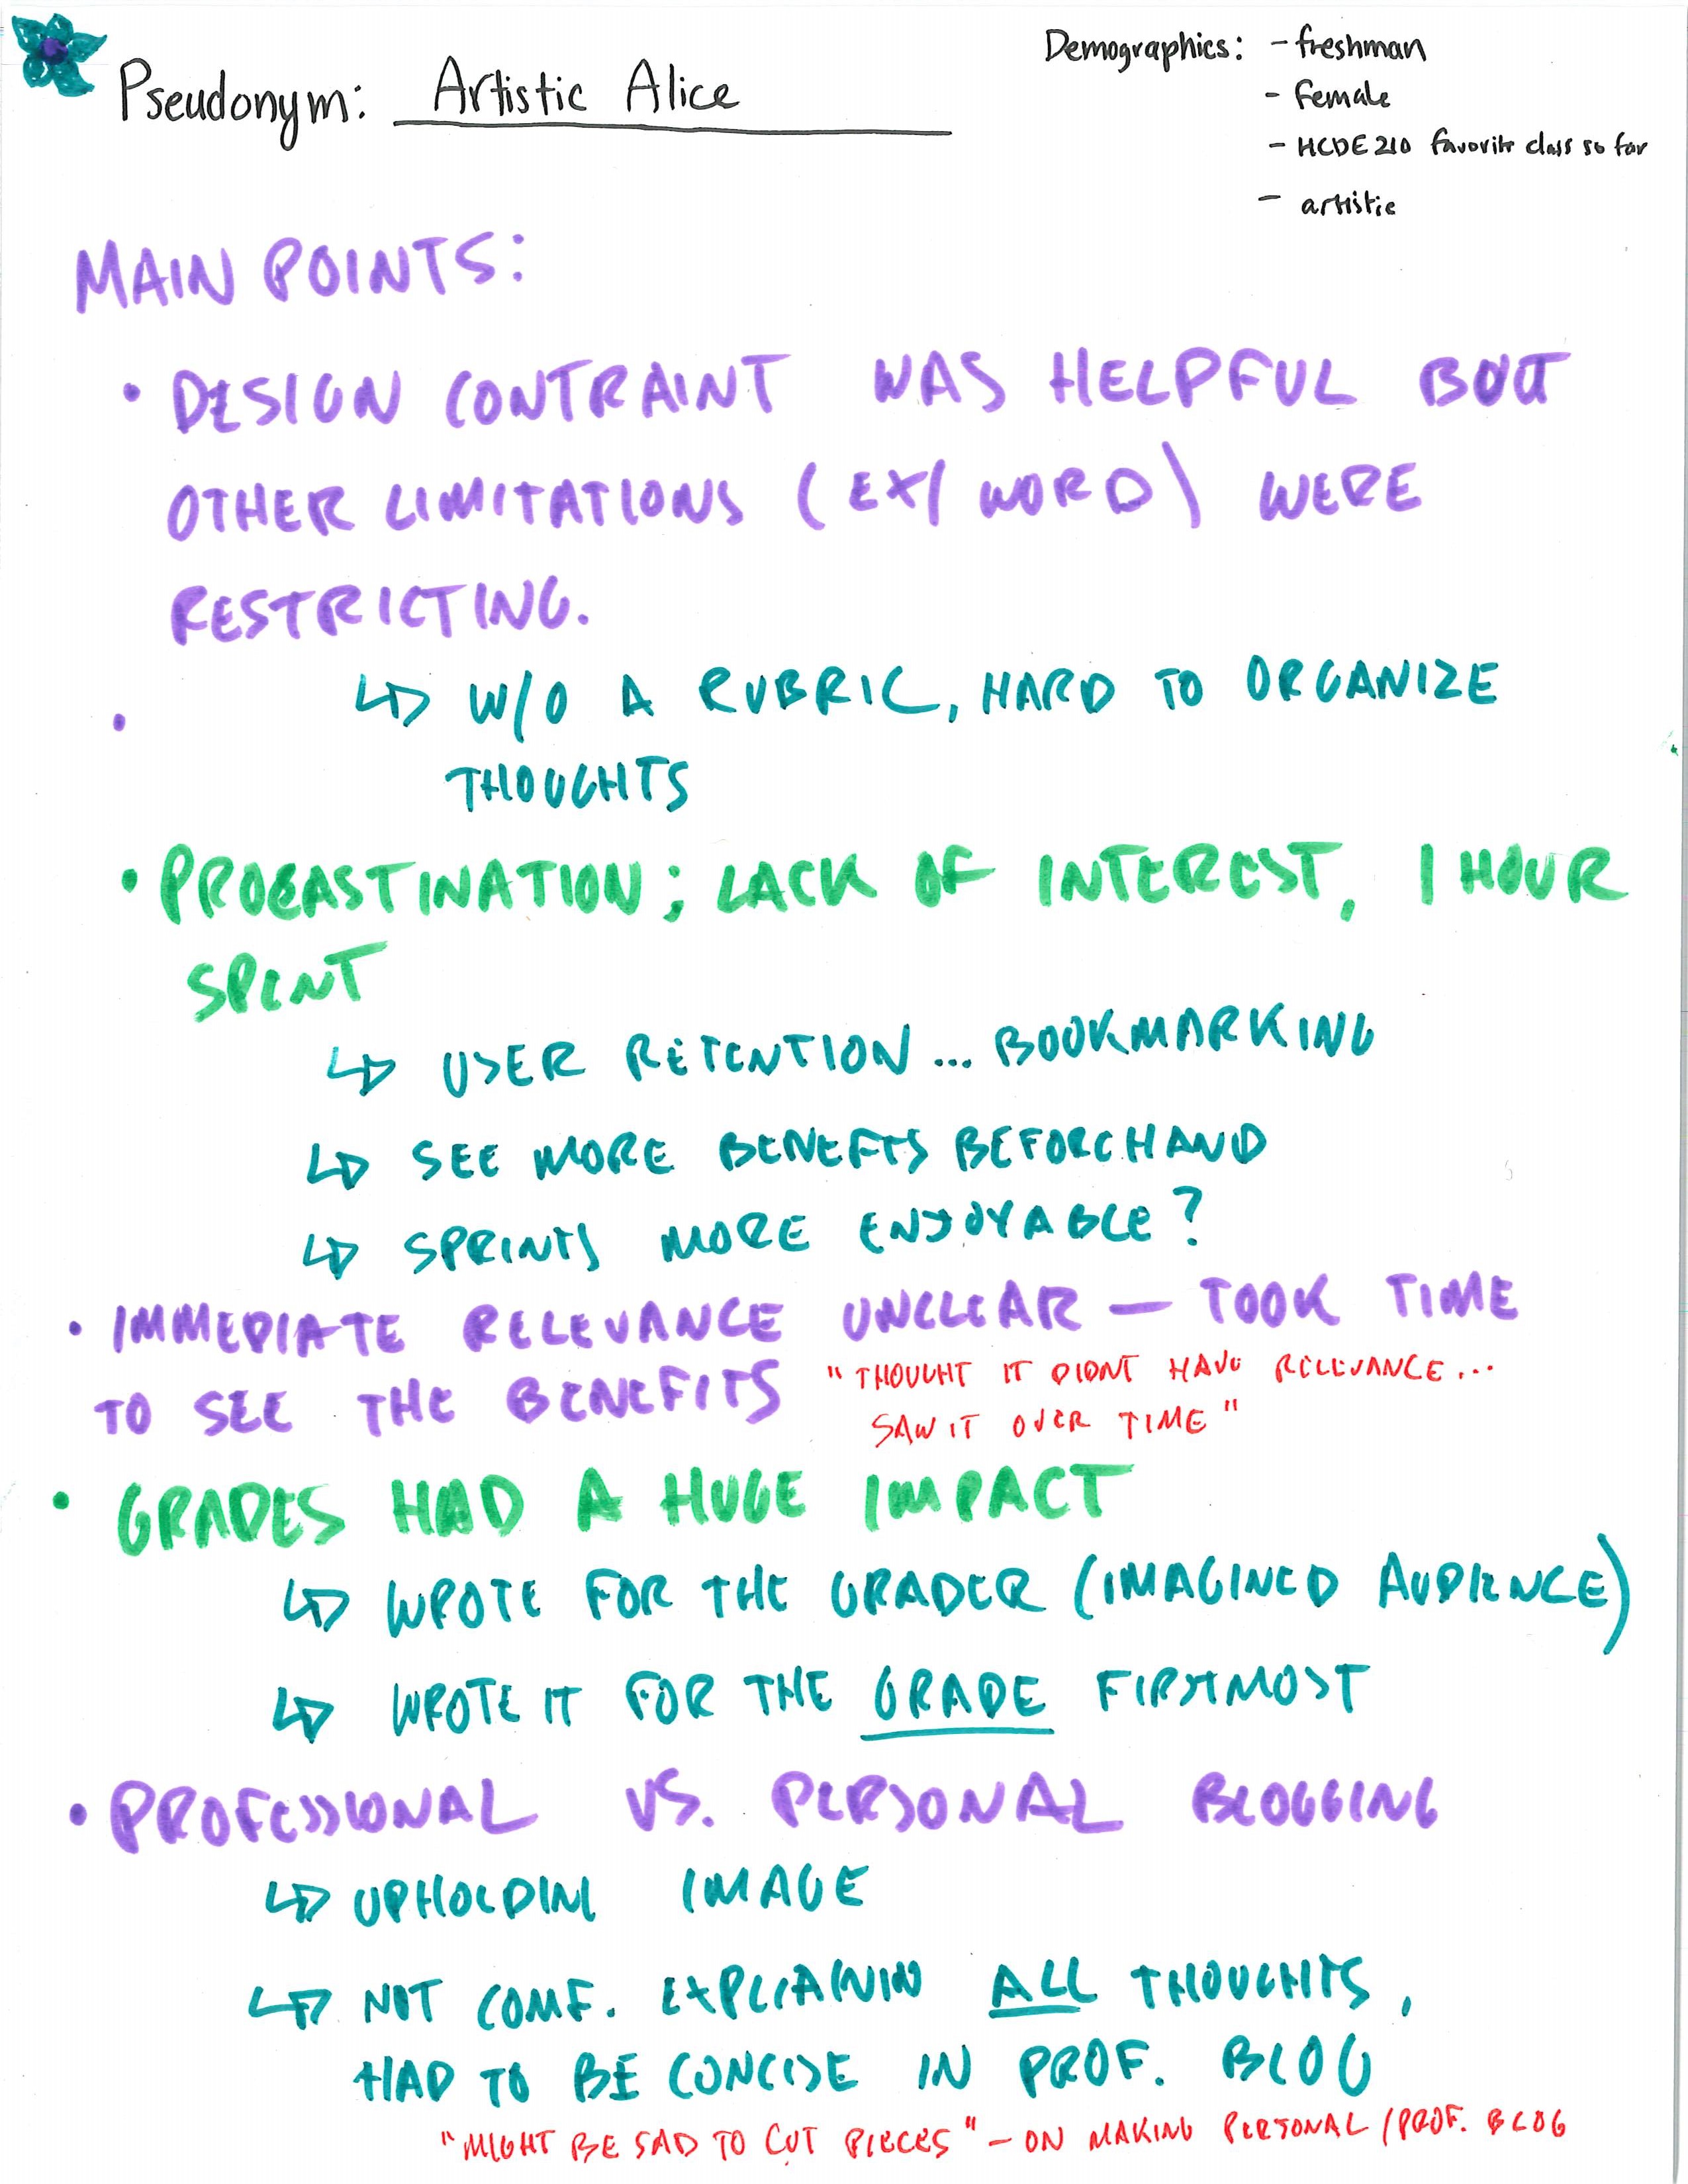 Pseudonym: Artistic Alice
Demographics: - freshman
- female
- HCDE 210 favorite class so far
- artistic
MAIN POINTS:
• DESIGN CONTRAINT WAS HELPFUL BUT
OTHER LIMITATIONS (EX/ WORD) WERE
RESTRICTING.
↳ W/O A RUBRIC, HARD TO ORGANIZE
•
THOUGHTS
• PROCASTINATION; LACK OF INTEREST, 1 HOUR
SPENT
↳ USER RETENTION... BOOKMARKING
↳ SEE MORE BENEFITS BEFOREHAND
↳ SPRINTS MORE ENJOYABLE?
• IMMEDIATE RELEVANCE UNCLEAR — TOOK TIME
TO SEE THE BENEFITS "THOUGHT IT DIDNT HAVE RELEVANCE...
SAW IT OVER TIME"
• GRADES HAD A HUGE IMPACT
↳ WROTE FOR THE GRADER (IMAGINED AUDIENCE)
↳ WROTE IT FOR THE GRADE FIRSTMOST
• PROFESSIONAL VS. PERSONAL BLOGGING
↳ UPHOLDING IMAGE
↳ NOT COMF. EXPLAINING ALL THOUGHTS,
HAD TO BE CONCISE IN PROF. BLOG
"MIGHT BE SAD TO CUT PIECES" - ON MAKING PERSONAL/PROF. BLOG